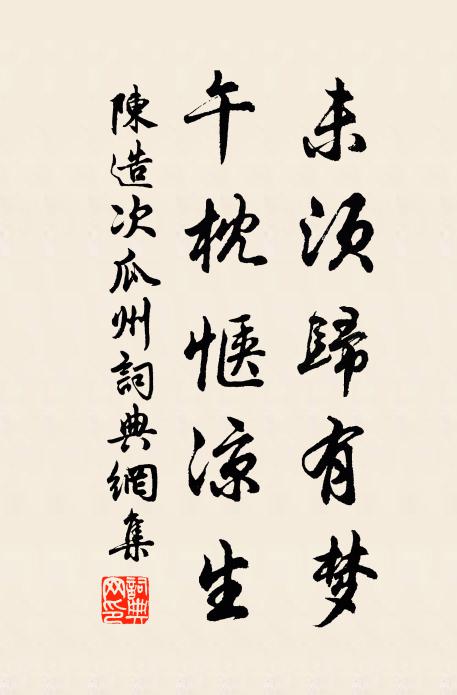 未須歸有梦
午枕惬凉生
陳造次瓜州詞典網集
詞典網印